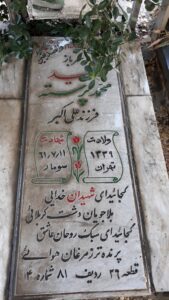 شهید
فرزند علی اکبر
ولادت
۱۳۳۱
تهران
شهادت
۶۱/۷/۱۱
سومار
کجائید ای شهیدان خدایی
بلاجویان دشت کربلائی
کجائید ای سبک روحان عاشق
پرنده تر ز مرغان هوائی
قطعه ۲۶ ردیف ۸۱ شماره ۴